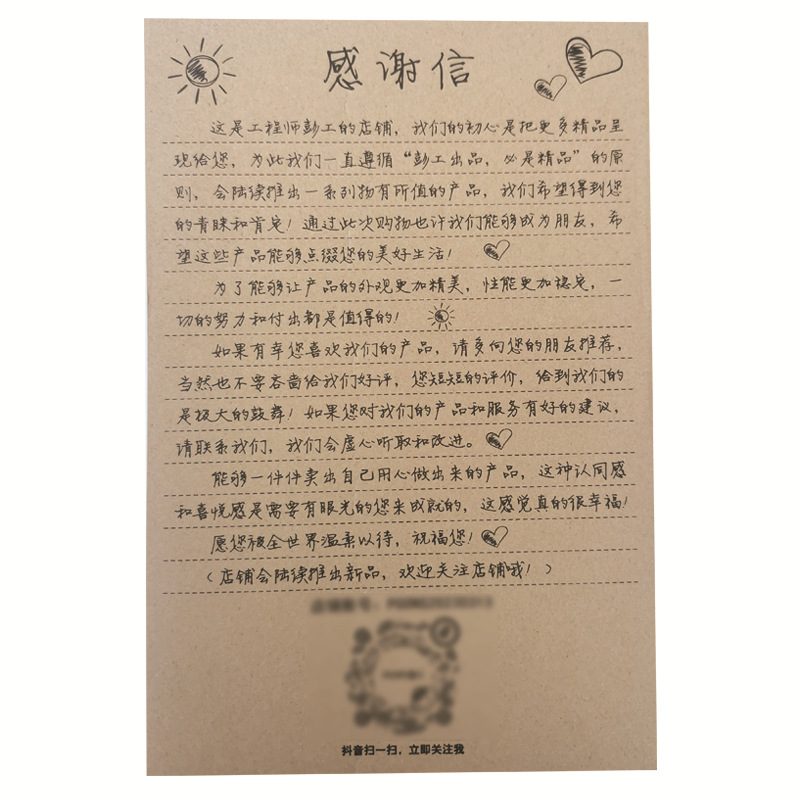 感谢信
这是工程师彭工的店铺，我们的初心是把更多精品呈
现给您，为此我们一直遵循“彭工出品，必是精品”的原
则，会陆续推出一系列物有所值的产品，我们希望得到您
的青睐和肯定！通过此次购物也许我们能够成为朋友，希
望这些产品能够点缀您的美好生活！
为了能够让产品的外观更加精美，性能更加稳定，一
切的努力和付出都是值得的！
如果有幸您喜欢我们的产品，请多向您的朋友推荐，
当然也不要吝啬给我们好评，您短短的评价，给到我们的
是极大的鼓舞！如果您对我们的产品和服务有好的建议，
请联系我们，我们会虚心听取和改进。
能够一件件卖出自己用心做出来的产品，这种认同感
和喜悦感是需要有眼光的您来成就的，这感觉真的很幸福！
愿您被全世界温柔以待，祝福您！
（店铺会陆续推出新品，欢迎关注店铺哦！）
抖音扫一扫，立即关注我